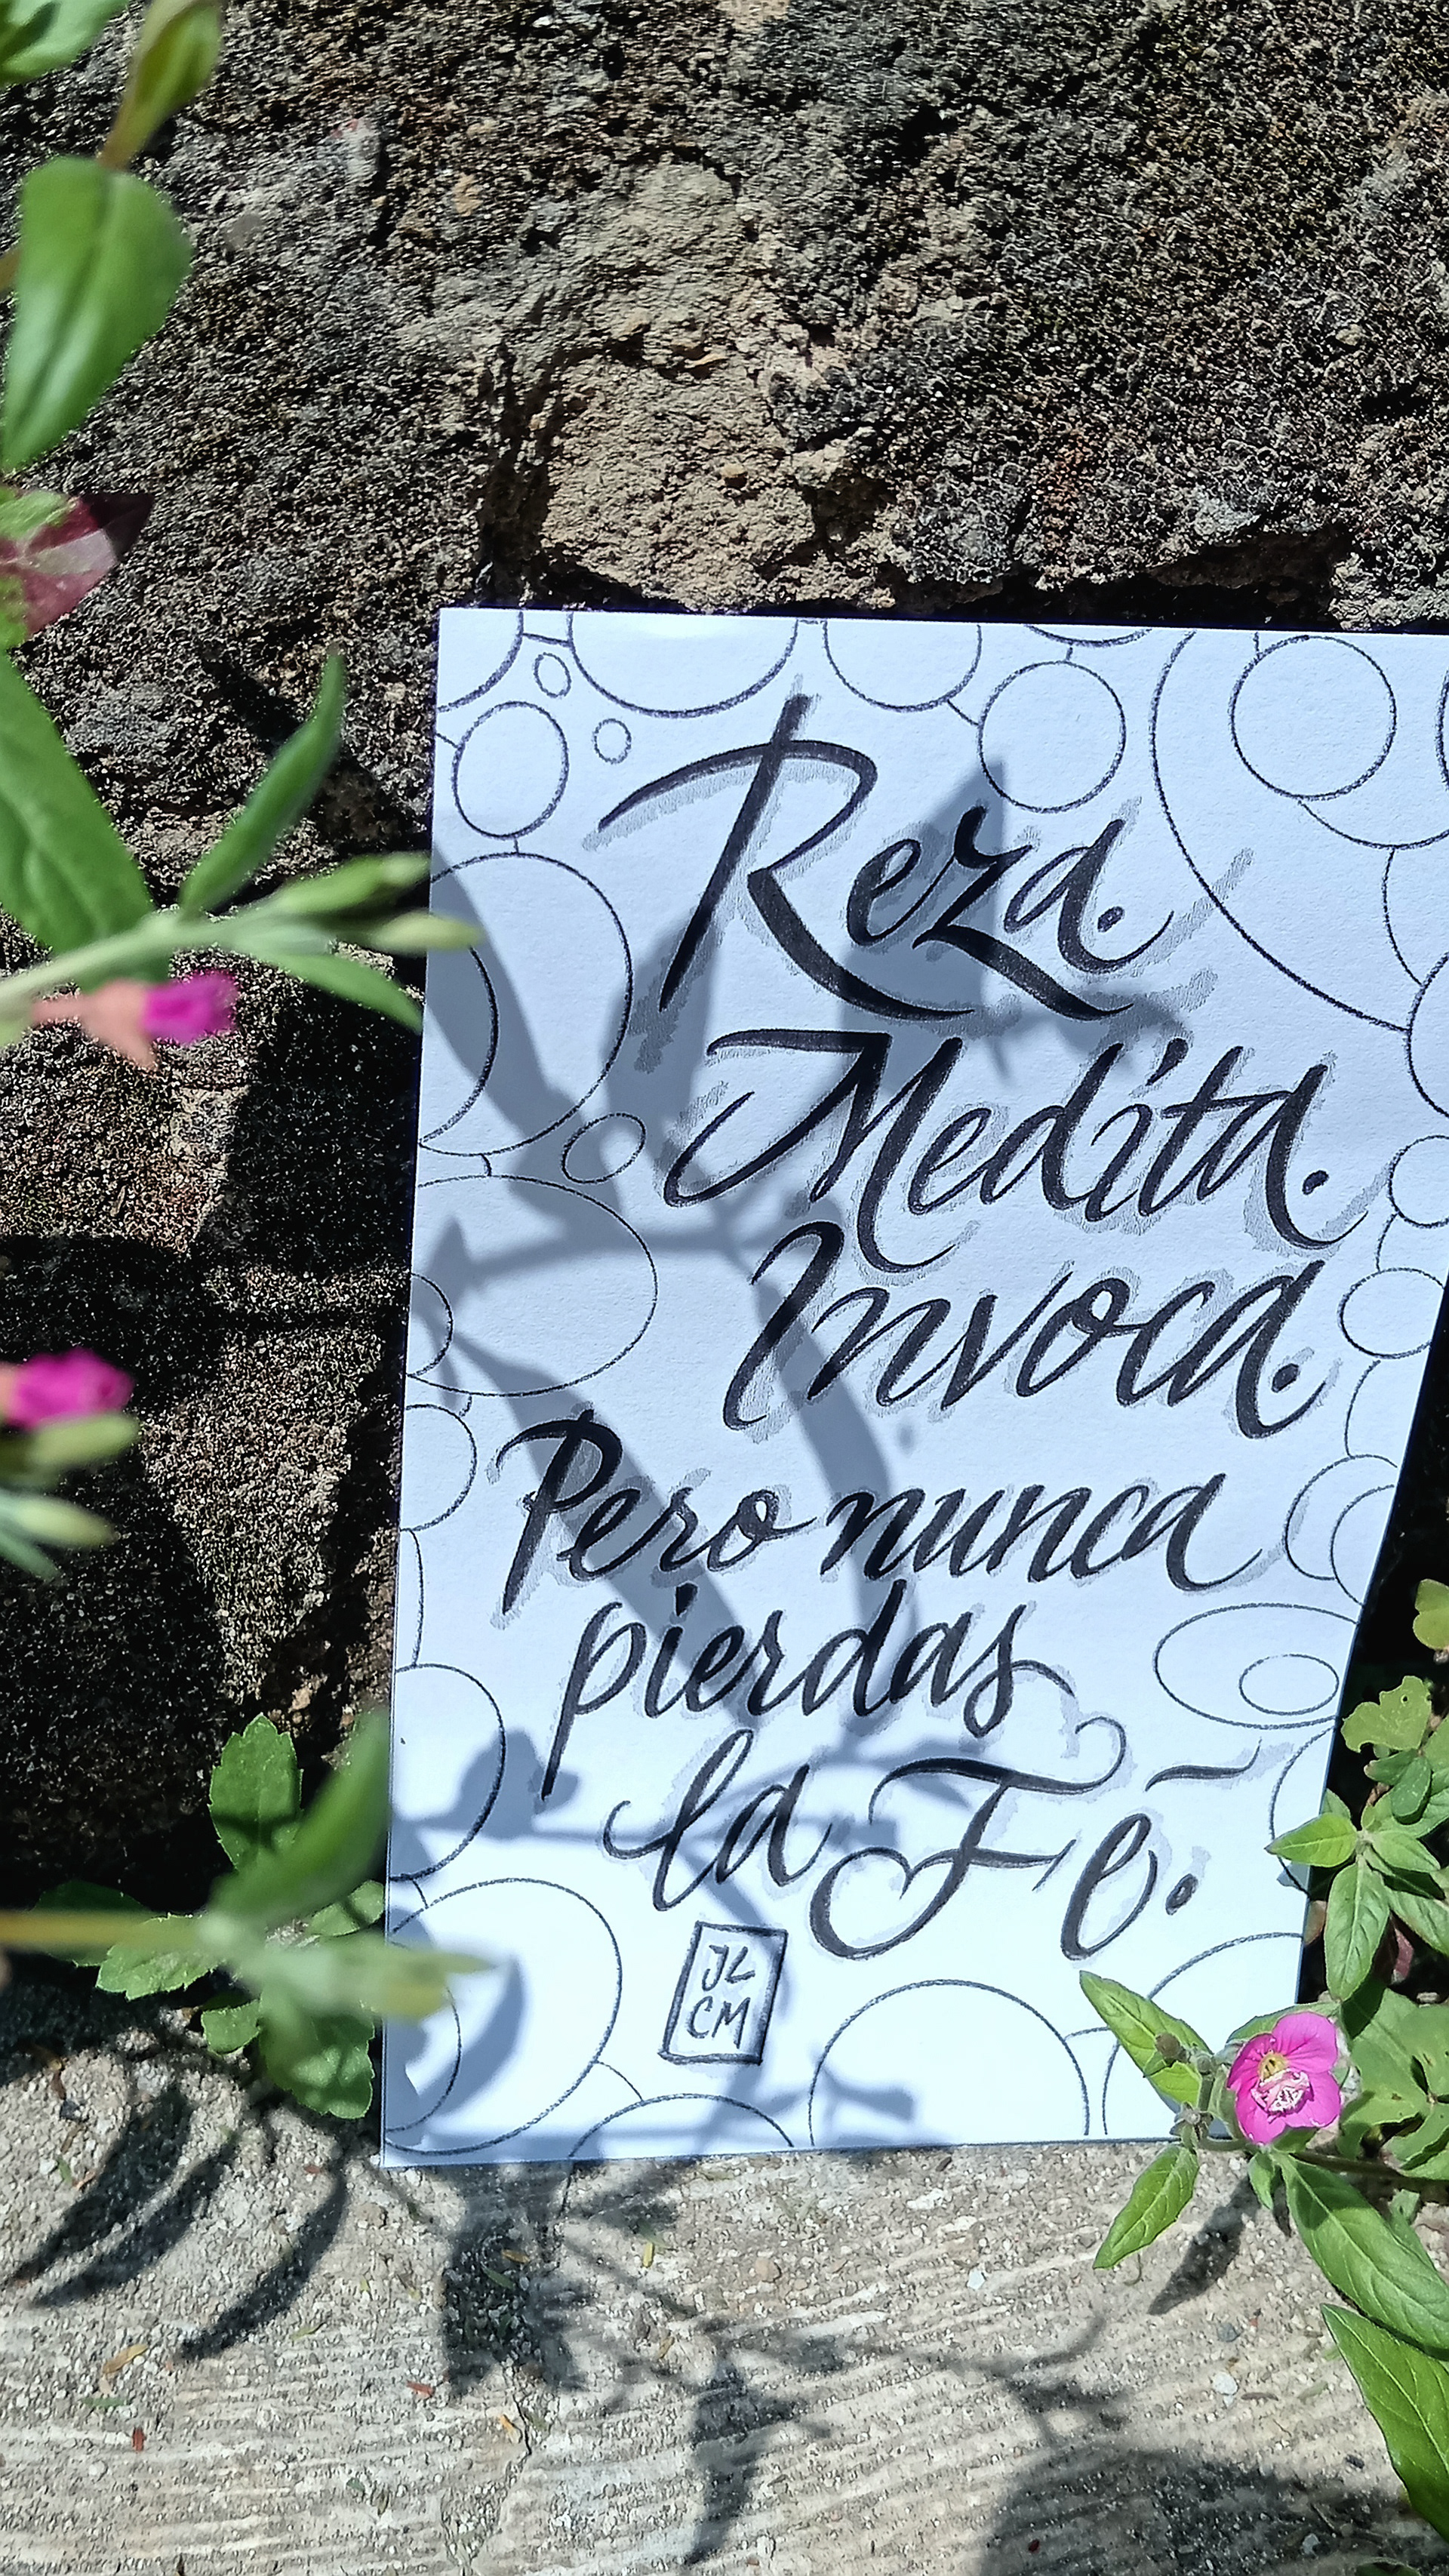 Reza.
Medita.
Invoca.
Pero nunca
pierdas
la Fé.
JL
CM